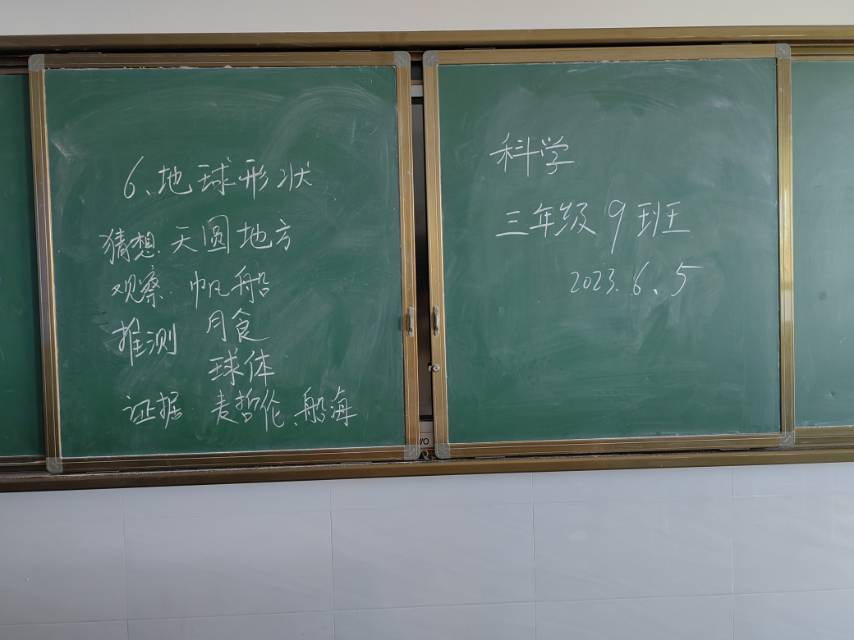 6、地球形状
猜想 天圆地方
观察 帆船
月食
推测
球体
证据 麦哲伦、船海
科学
三年级9班
2023.6.5